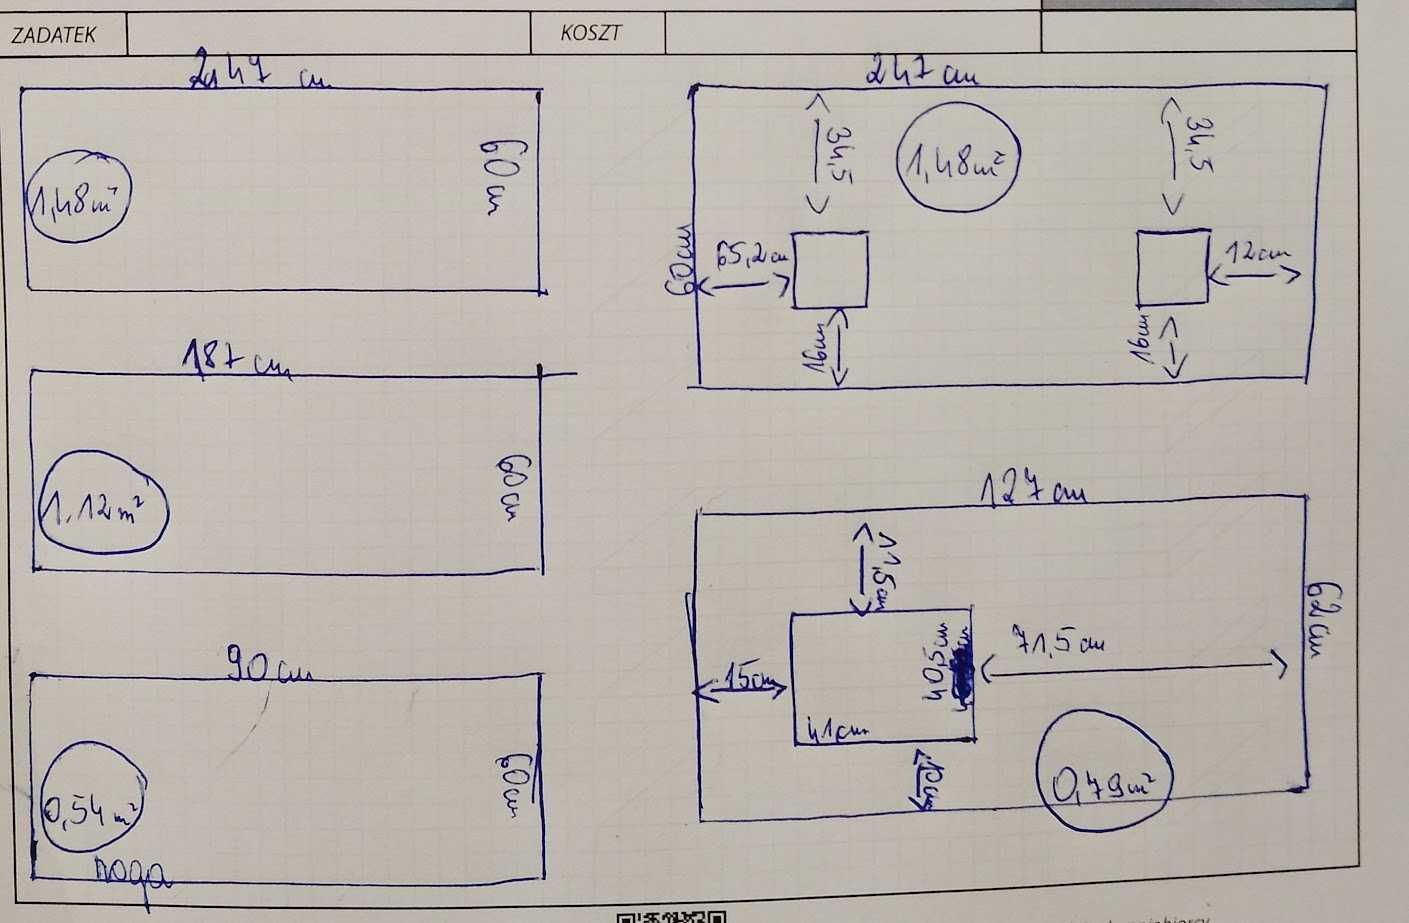 ZADATEK
KOSZT
247 cm
60 cm
1,48 m²
187 cm
60 cm
1.12 m²
90 cm
60 cm
0,54 m²
noga
247 cm
60 cm
34,5
1,48 m²
34,5
65,2 cm
12 cm
16 cm
16 cm
127 cm
11,5 cm
62 cm
15 cm
40,5 cm
71,5 cm
41 cm
0,79 m²